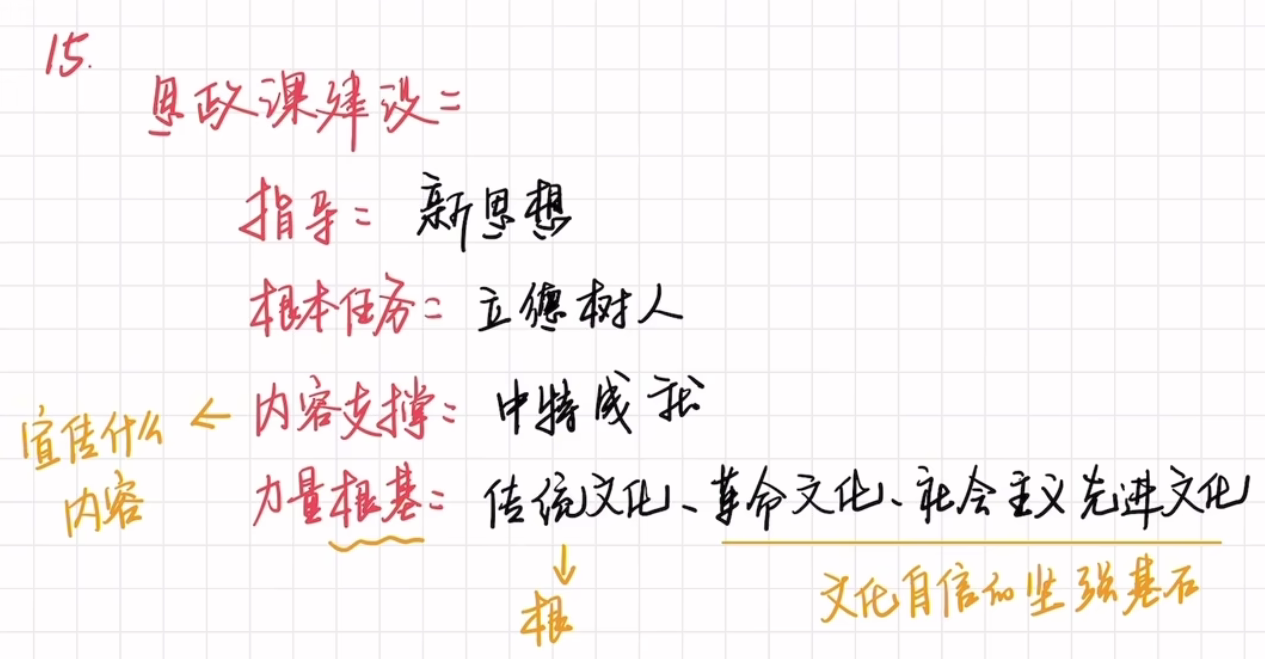 15.
思政课建设：
指导：新思想
根本任务：立德树人
内容支撑：中特成就
宣传什么
内容
力量根基：传统文化、革命文化、社会主义先进文化
根
文化自信的坚强基石